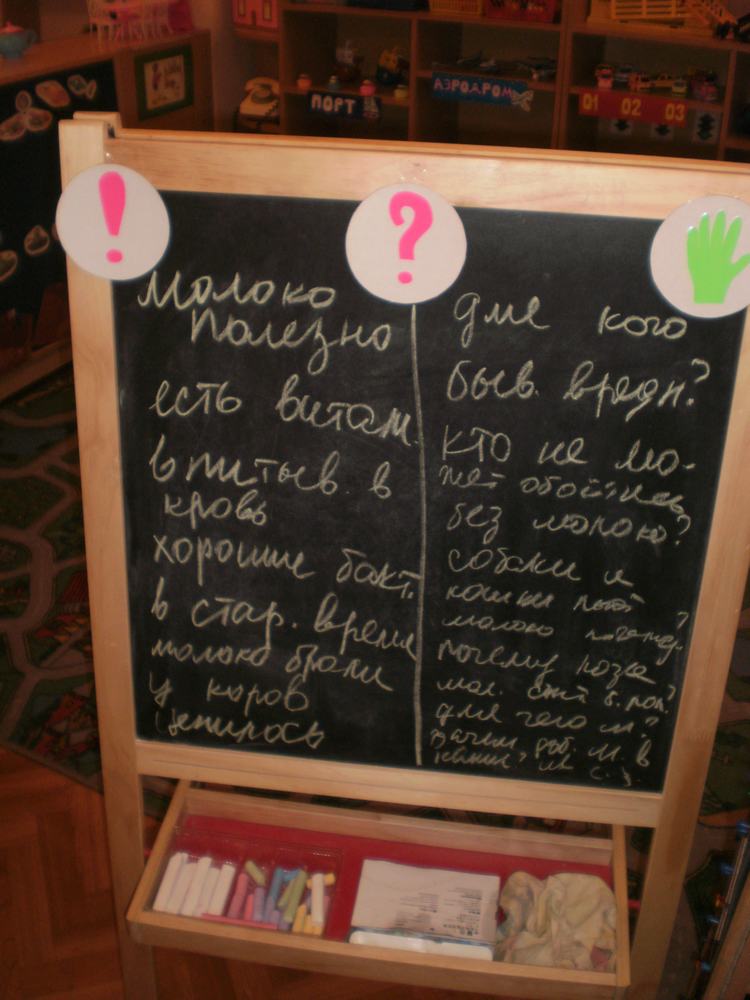 ПОРТ
АЭРОДРОМ
01 02 03
!
?
молоко
полезно
есть витам.
впитыв. в
кровь
хорошие бакт.
в стар. время
молоко брали
у коров
ценилось
для кого
быв. вредн.?
кто не мо-
жет обойтись
без молоко?
собаки и
кошки пьют
молоко
почему коза
мол.
для чего м.?
зачем доб. м. в